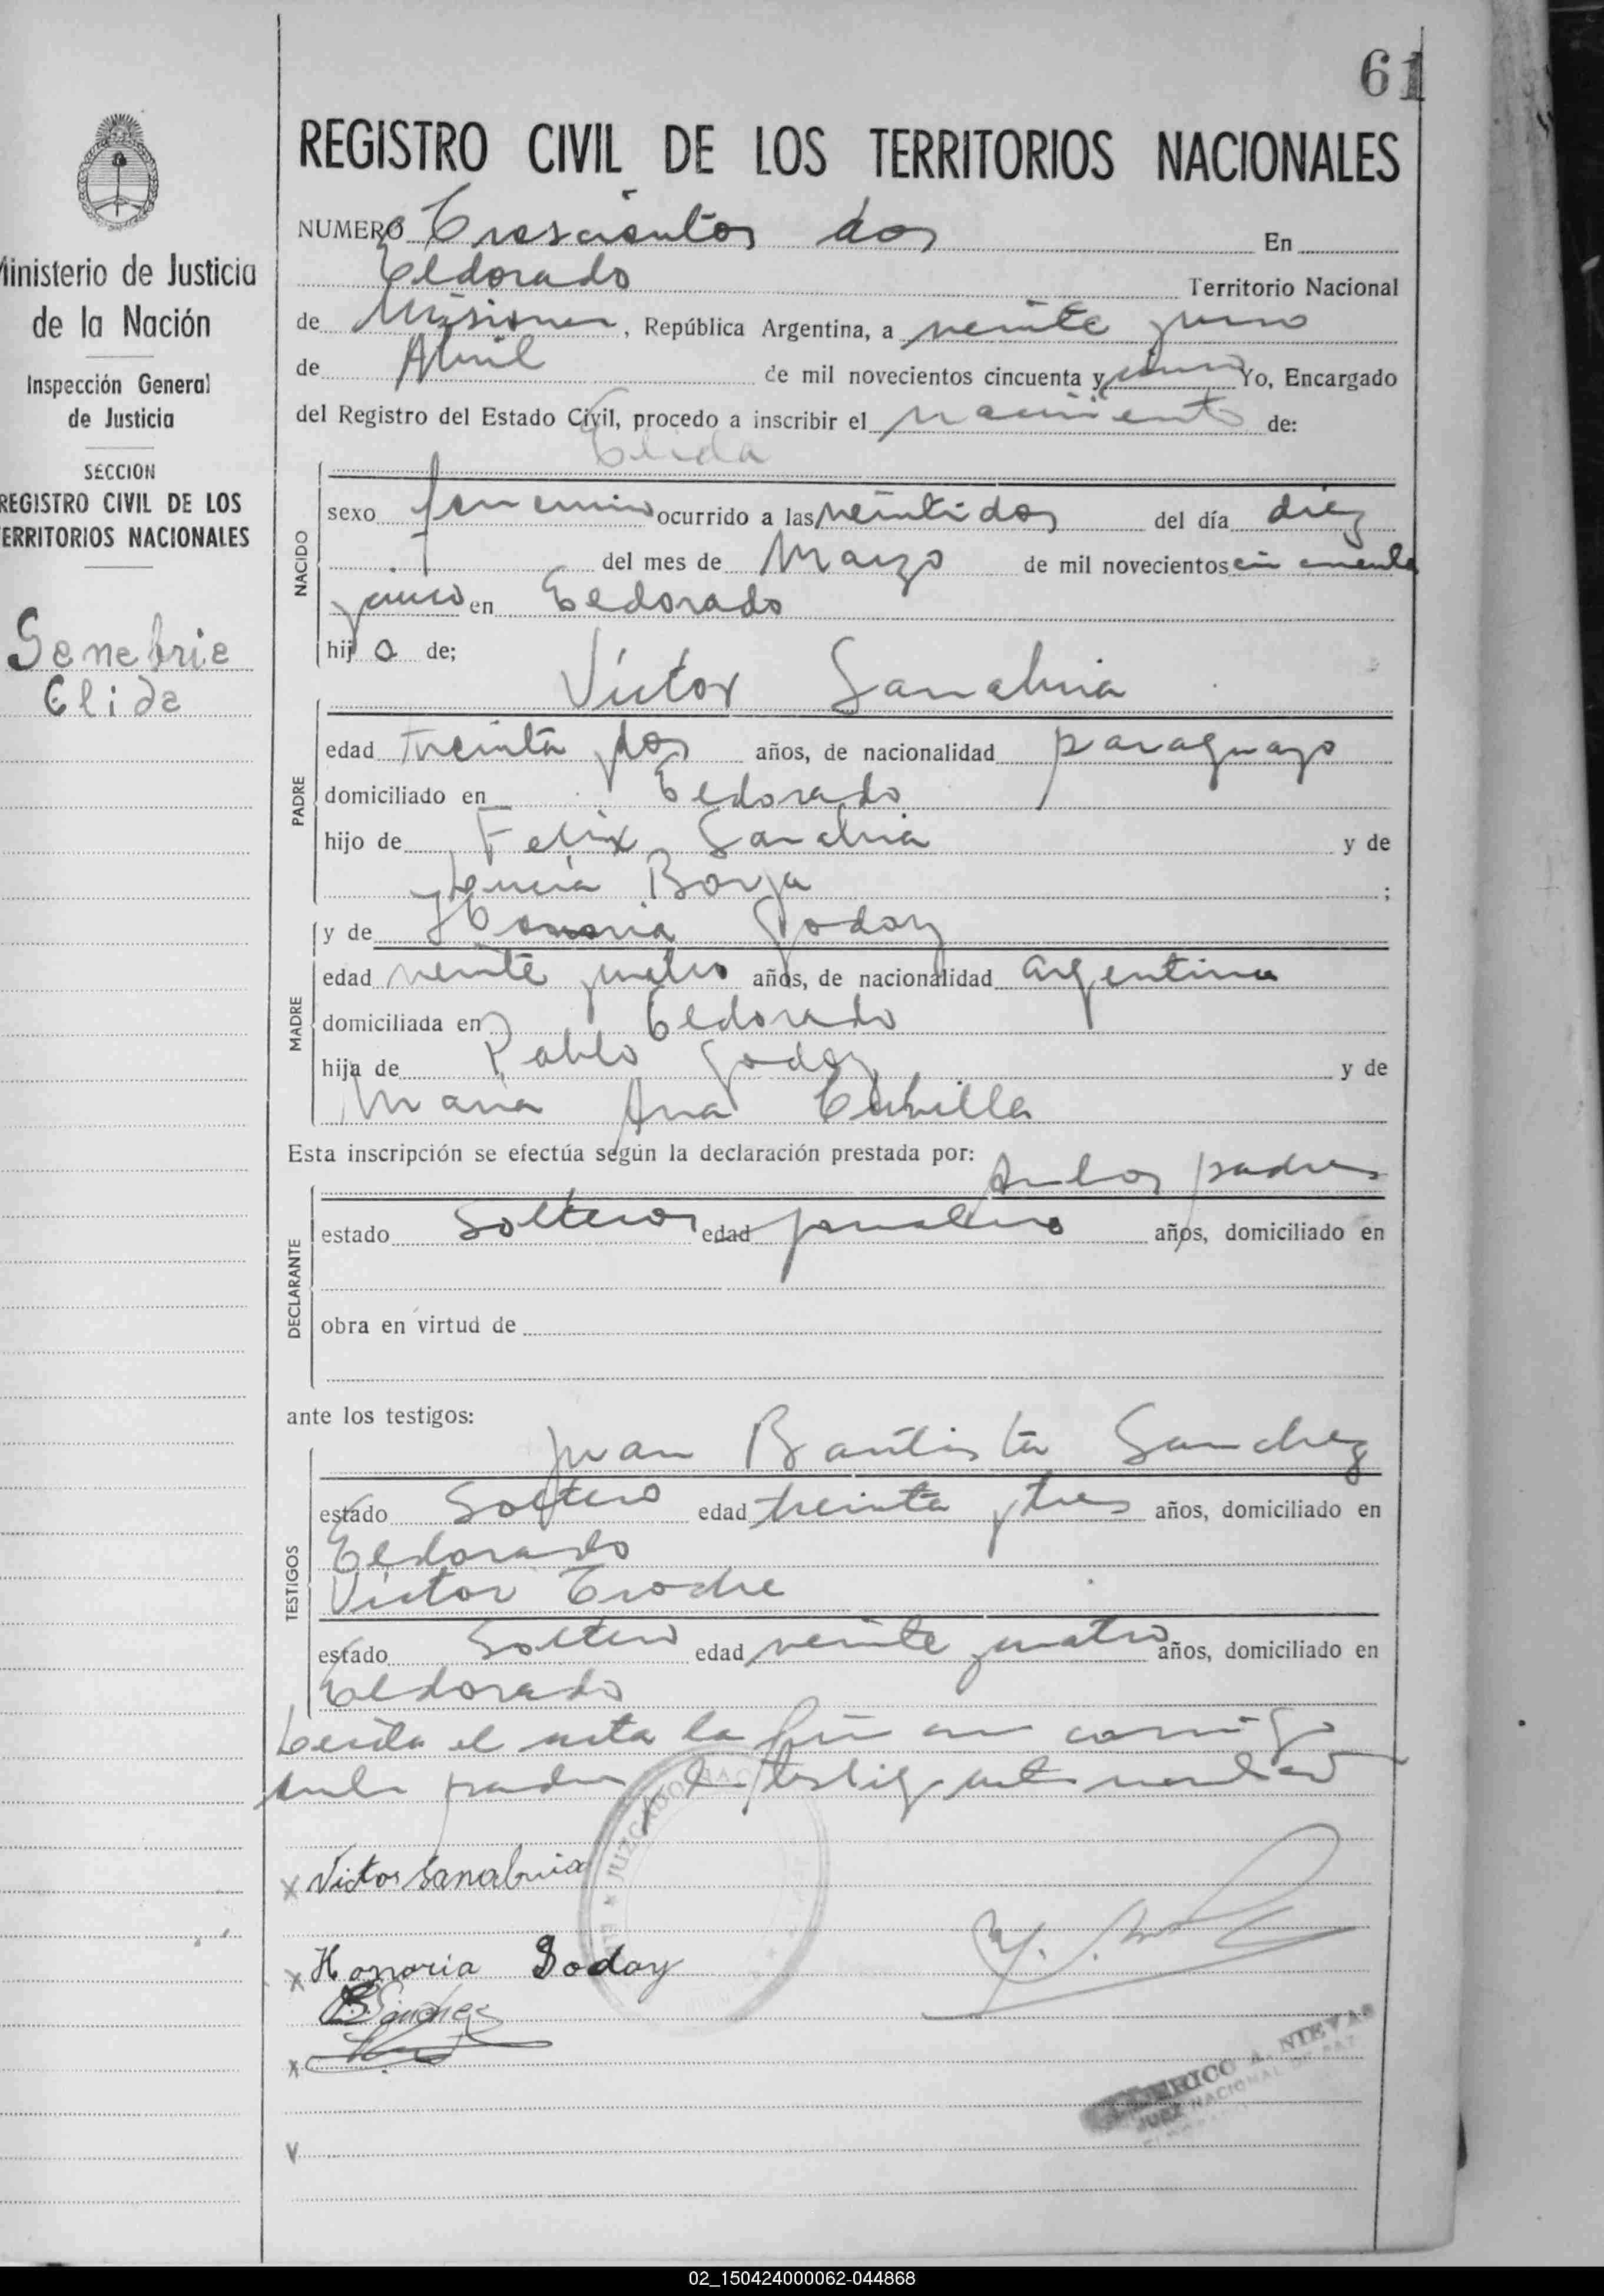 61
REGISTRO CIVIL DE LOS TERRITORIOS NACIONALES
NUMERO Trescientos dos En
Eldorado Territorio Nacional
de Misiones, República Argentina, a veinte
de Abril de mil novecientos cincuenta y cinco Yo, Encargado
del Registro del Estado Civil, procedo a inscribir el nacimiento de:
Elida
NACIDO
sexo femenino ocurrido a las veintidos del día diez
del mes de Marzo de mil novecientos cincuenta
y cinco en Eldorado
hija de;
Victor Sanabria
PADRE
edad treinta y dos años, de nacionalidad paraguayo
domiciliado en Eldorado
hijo de Felix Sanabria y de
Borja ;
y de Honoria Godoy
MADRE
edad veinte y cuatro años, de nacionalidad argentina
domiciliada en Eldorado
hija de Pablo Godoy y de
Maria Ana
Esta inscripción se efectúa según la declaración prestada por:
Ambos padres
DECLARANTE
estado Solteros edad años, domiciliado en
obra en virtud de
ante los testigos:
Juan Bautista Sanchez
TESTIGOS
estado Soltero edad treinta y tres años, domiciliado en
Eldorado
Victor Troche
estado Soltero edad veinte y cuatro años, domiciliado en
Eldorado
Leida el acta la conmigo
padres testigos
x Victor Sanabria
x Honoria Godoy
B. Sanchez
x
v
JUZGADO
RICO A. NIEVAS
JUEZ NACIONAL DE PAZ
ELDORADO
Ministerio de Justicia
de la Nación
Inspección General
de Justicia
SECCION
REGISTRO CIVIL DE LOS
TERRITORIOS NACIONALES
Senebrie
Elida
02_150424000062-044868